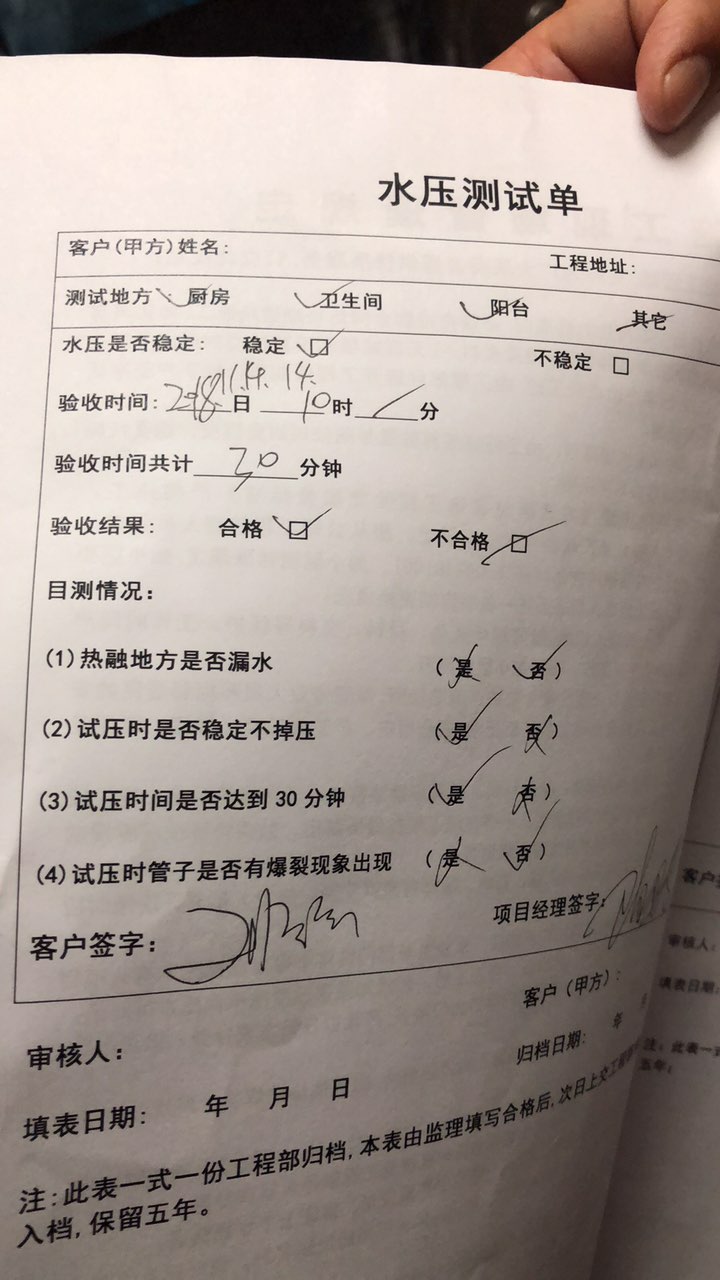 水压测试单
客户(甲方)姓名: 工程地址:
测试地方: 厨房 卫生间 阳台 其它
水压是否稳定: 稳定 □ 不稳定 □
验收时间: 日 10时 分
验收时间共计 分钟
验收结果: 合格 □ 不合格 □
目测情况:
(1)热融地方是否漏水 (是 否)
(2)试压时是否稳定不掉压 (是 否)
(3)试压时间是否达到30分钟 (是 否)
(4)试压时管子是否有爆裂现象出现 (是 否)
客户签字: 项目经理签字:
客户(甲方):
审核人: 归档日期: 年
填表日期: 年 月 日
注:此表一式一份工程部归档,本表由监理填写合格后,次日上交工程
入档,保留五年。
客户
审核人:
填表日期:
注:此表一式
五年。